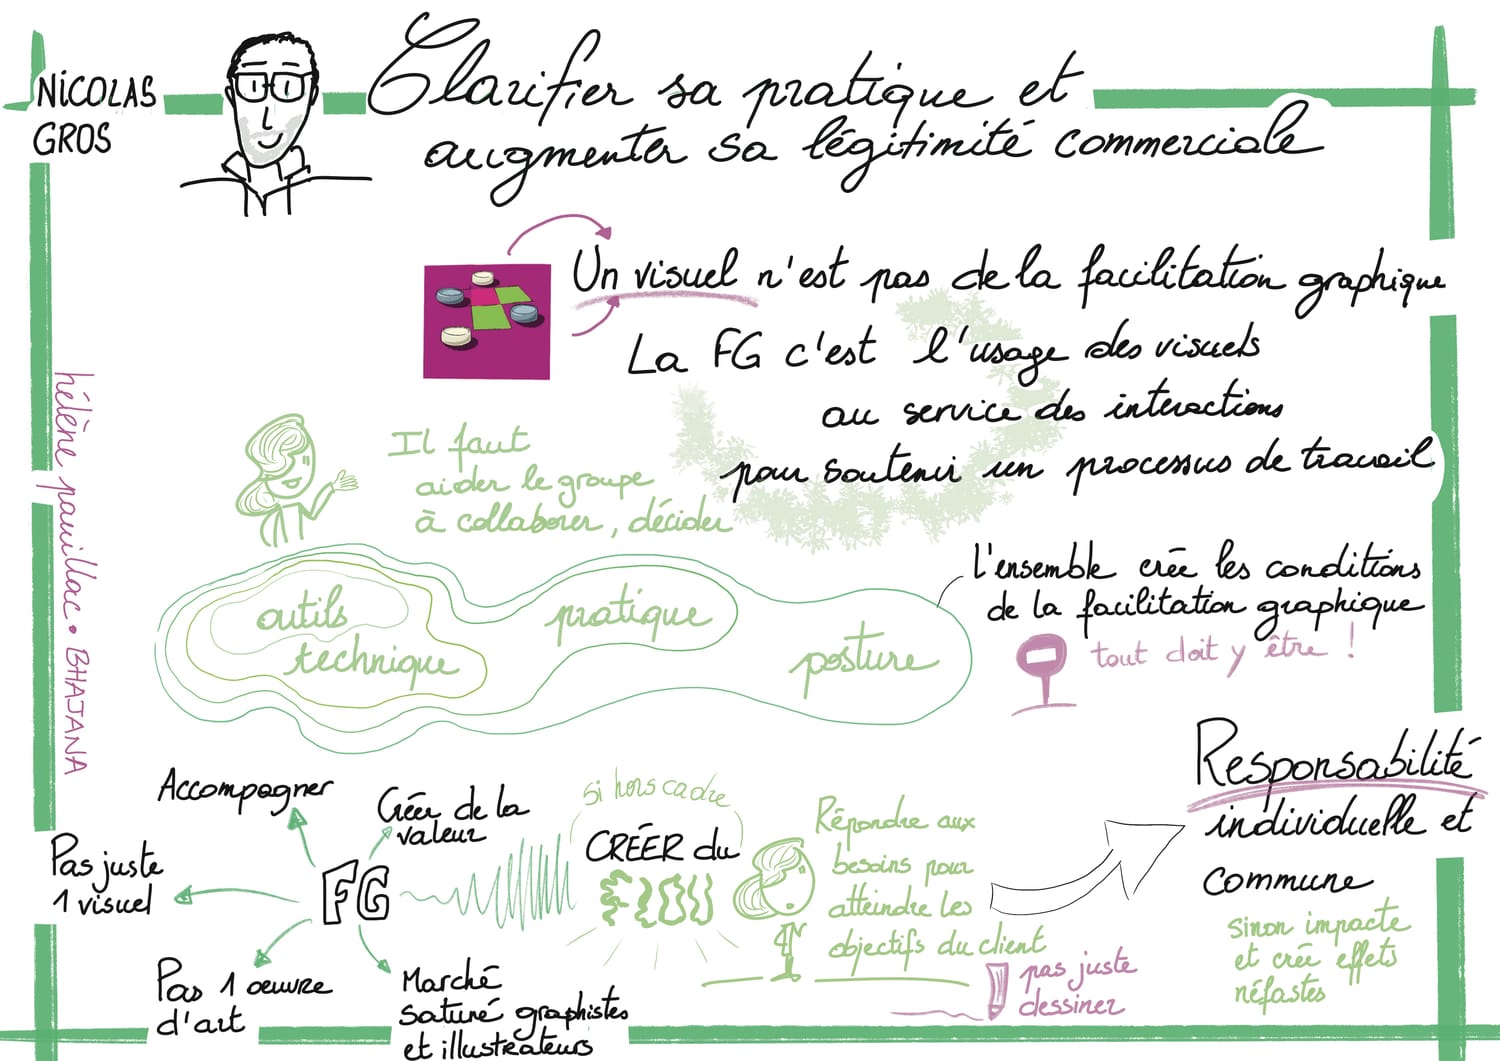 NICOLAS
GROS
Clarifier sa pratique et
augmenter sa légitimité commerciale
Un visuel n'est pas de la facilitation graphique
La FG c'est l'usage des visuels
au service des interactions
pour soutenir un processus de travail
Il faut
aider le groupe
à collaborer, décider
outils
technique
pratique
posture
l'ensemble crée les conditions
de la facilitation graphique
tout doit y être !
hélène pouillac • BHAJANA
Accompagner
Créer de la
valeur
Pas juste
1 visuel
FG
Pas 1 œuvre
d'art
Marché
saturé graphistes
et illustrateurs
si hors cadre
CRÉER du
FLOU
Répondre aux
besoins pour
atteindre les
objectifs du client
pas juste
dessiner
Responsabilité
individuelle et
commune
sinon impacte
et crée effets
néfastes